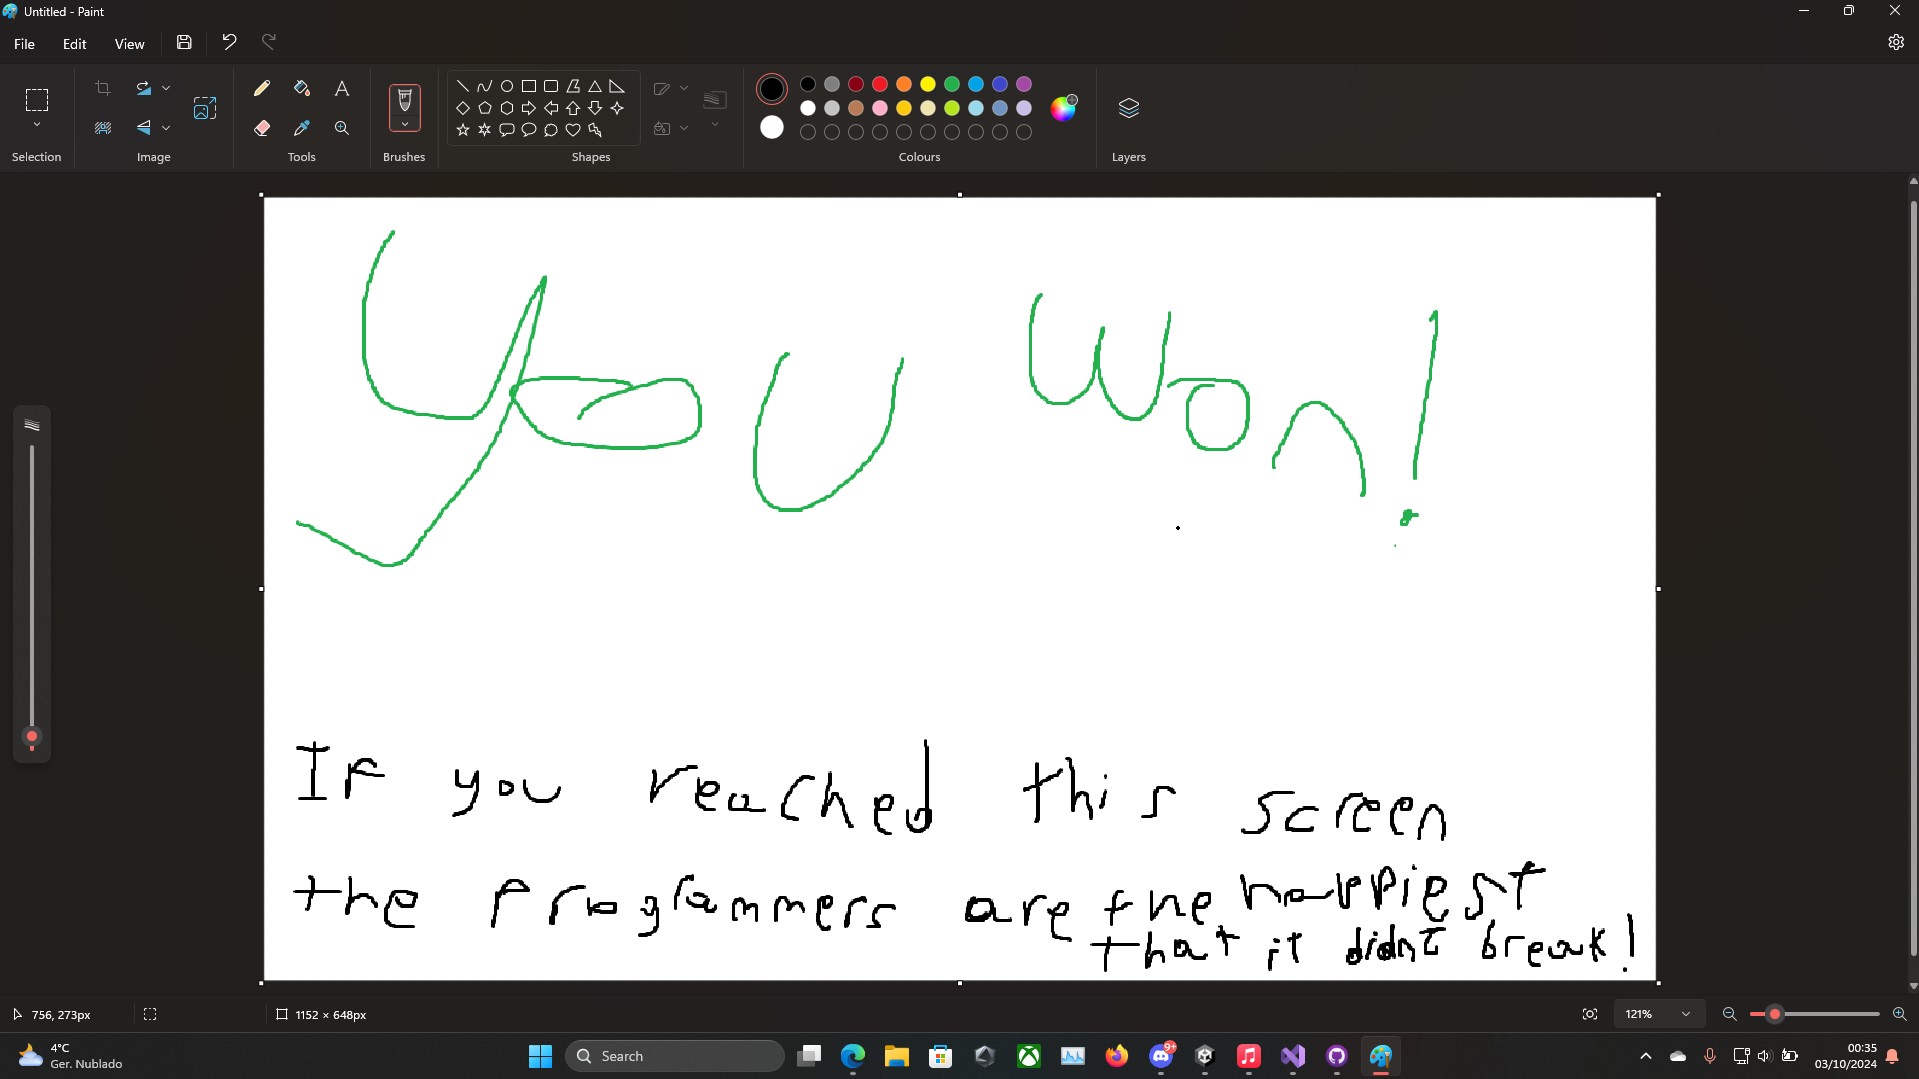 Untitled - Paint
File Edit View
Selection Image Tools Brushes Shapes Colours Layers
You won!
If you reached this screen
the programmers are the happiest
that it didnt break!
756, 273px 1152 × 648px 121%
4°C
Ger. Nublado
Search
9+
00:35
03/10/2024